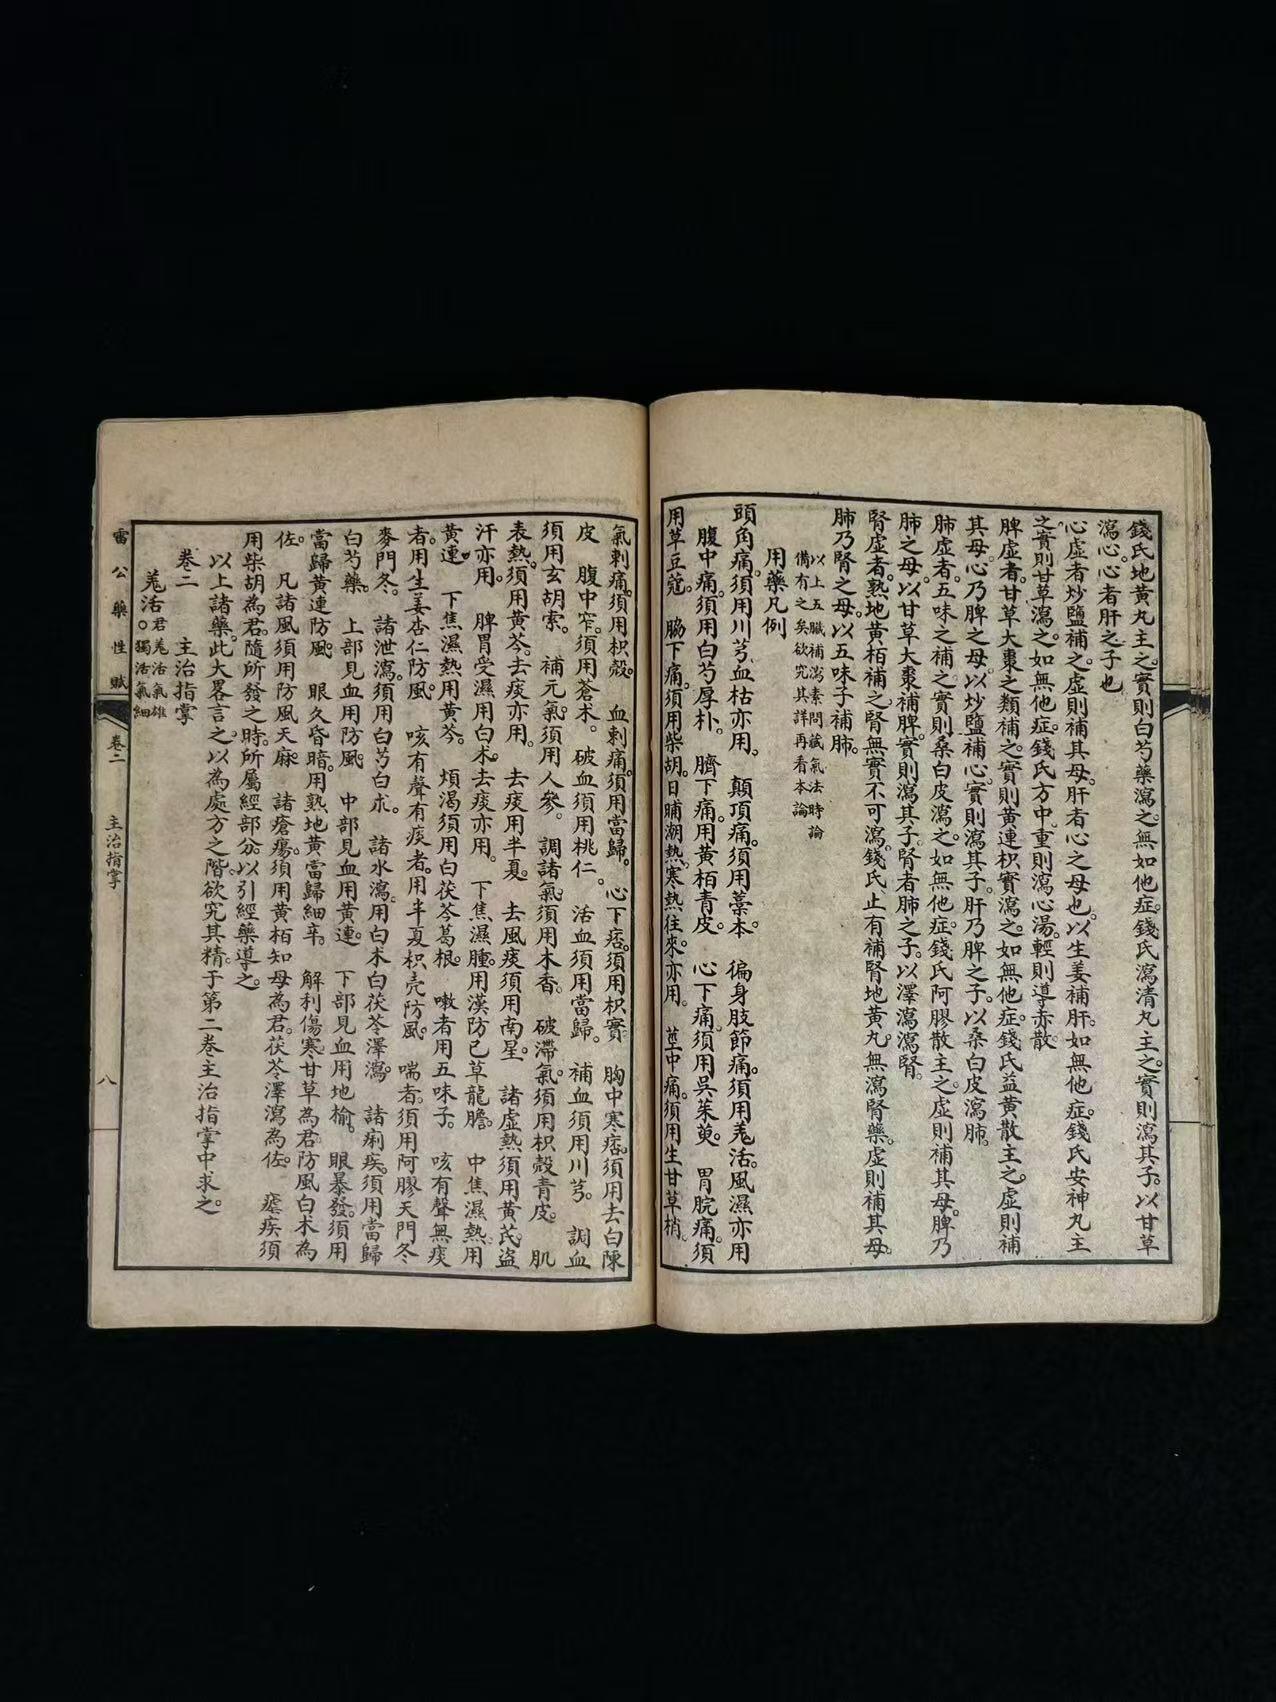 錢氏地黃丸主之。實則白芍藥瀉之。無如他症。錢氏瀉清丸主之。實則瀉其子。以甘草
瀉心。心者肝之子也
心虛者炒鹽補之。虛則補其母。肝者心之母也。以生姜補肝。如無他症。錢氏安神丸主
之。實則甘草瀉之。如無他症。錢氏方中重則瀉心湯。輕則導赤散
脾虛者。甘草大棗之類補之。實則黃連枳實瀉之。如無他症。錢氏益黃散主之。虛則補
其母。心乃脾之母。以炒鹽補心。實則瀉其子。肝乃脾之子。以桑白皮瀉肺。
肺虛者。五味之補之。實則桑白皮瀉之。如無他症。錢氏阿膠散主之。虛則補其母。脾乃
肺之母。以甘草大棗補脾。實則瀉其子。腎者肺之子。以澤瀉瀉腎。
腎虛者。熟地黃栢補之。腎無實不可瀉。錢氏止有補腎地黃丸。無瀉腎藥。虛則補其母。
肺乃腎之母。以五味子補肺。
以上五臟補瀉素問藏氣法時論
備有之矣欲究其詳再看本論
用藥凡例
頭角痛。須用川芎。血枯亦用。　顛頂痛。須用藁本　徧身肢節痛。須用羗活。風濕亦用
腹中痛。須用白芍厚朴。　臍下痛。用黃栢青皮。　心下痛。須用吳茱萸。　胃脘痛。須
用草豆蔻。　脇下痛。須用柴胡。日晡潮熱。寒熱往來。亦用。　莖中痛。須用生甘草梢。
氣刺痛。須用枳殼。　血刺痛。須用當歸。　心下痞。須用枳實　胸中寒痞。須用去白陳
皮　腹中窄。須用蒼术。　破血須用桃仁。　活血須用當歸。　補血須用川芎。　調血
須用玄胡索。　補元氣。須用人參。　調諸氣。須用木香。　破滯氣。須用枳殼青皮。　肌
表熱。須用黃芩。去痰亦用。　去痰用半夏。　去風痰須用南星。　諸虛熱須用黃芪。盜
汗亦用。　脾胃受濕用白术。去痰亦用。　下焦濕腫。用漢防己草龍膽。　中焦濕熱。用
黃連。　下焦濕熱用黃芩。　煩渴須用白茯苓葛根。　嗽者用五味子。　咳有聲無痰
者。用生姜杏仁防風。　咳有聲有痰者。用半夏枳壳防風。　喘者。須用阿膠天門冬
麥門冬。　諸泄瀉。須用白芍白朮。　諸水瀉。用白木白茯苓澤瀉。　諸痢疾。須用當歸
白芍藥。　上部見血用防風。　中部見血用黃連。　下部見血用地榆。　眼暴發。須用
當歸黃連防風。　眼久昏暗。用熟地黃當歸細辛。　解利傷寒。甘草為君。防風白木為
佐。　凡諸風須用防風天麻。　諸瘡瘍。須用黃栢知母為君。茯苓澤瀉為佐。　瘧疾須
用柴胡為君。隨所發之時。所屬經部分。以引經藥導之。
以上諸藥。此大畧言之。以為處方之階。欲究其精。于第二卷主治指掌中求之。
卷二　主治指掌
羗活○君羗活氣雄
獨活氣細
雷公藥性賦　卷二　主治指掌　八